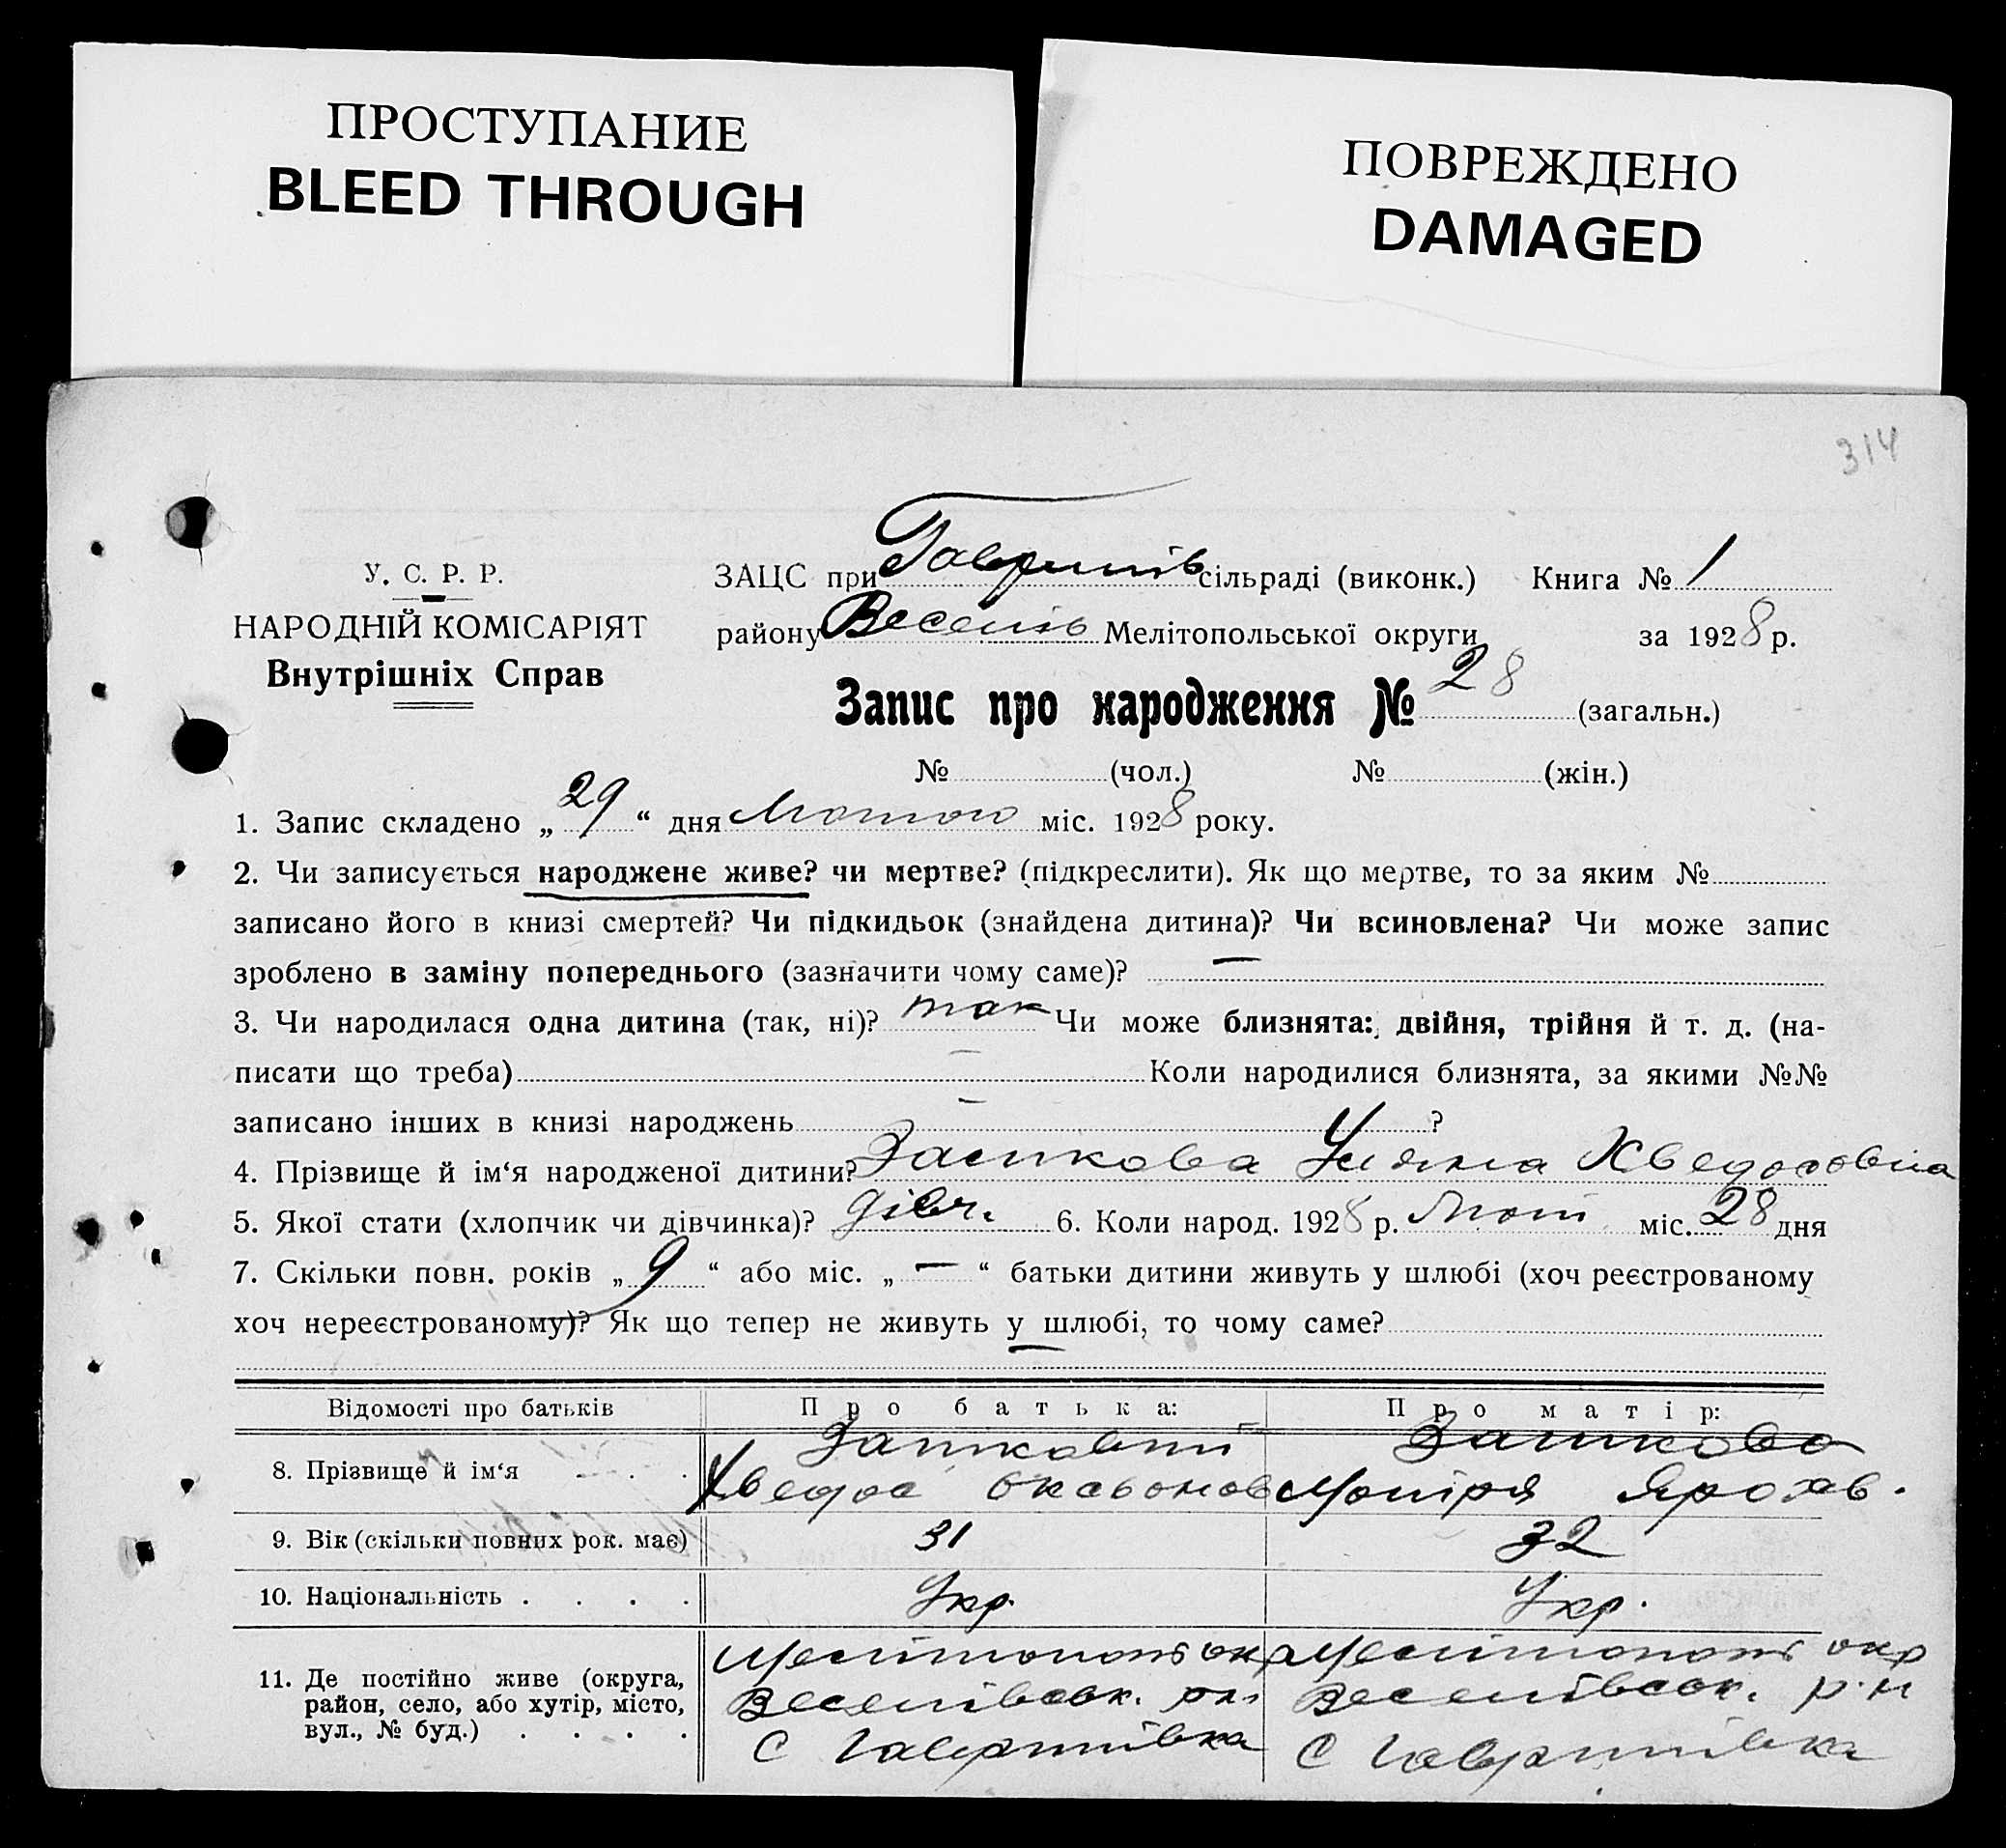 ПРОСТУПАНИЕ
BLEED THROUGH
ПОВРЕЖДЕНО
DAMAGED
314
У. С. Р. Р.
НАРОДНІЙ КОМІСАРІЯТ
Внутрішніх Справ
ЗАЦС при Гаврилів сільраді (виконк.) Книга № 1
району Веселів Мелітопольської округи за 1928 р.
Запис про народження № 28 (загальн.)
№ (чол.) № (жін.)
1. Запис складено „29“ дня Лютого міс. 1928 року.
2. Чи записується народжене живе? чи мертве? (підкреслити). Як що мертве, то за яким №
записано його в книзі смертей? Чи підкидьок (знайдена дитина)? Чи всиновлена? Чи може запис
зроблено в заміну попереднього (зазначити чому саме)? —
3. Чи народилася одна дитина (так, ні)? так Чи може близнята: двійня, трійня й т. д. (на-
писати що треба) — Коли народилися близнята, за якими №№
записано інших в книзі народжень — ?
4. Прізвище й ім‘я народженої дитини? Уляна
5. Якої стати (хлопчик чи дівчинка)? дівч. 6. Коли народ. 1928 р. Лют міс. 28 дня
7. Скільки повн. років „9“ або міс. „—“ батьки дитини живуть у шлюбі (хоч реєстрованому
хоч нереєстрованому)? Як що тепер не живуть у шлюбі, то чому саме?
Відомості про батьків Про батька: Про матір:
8. Прізвище й ім‘я . . .
Хведос
9. Вік (скільки повних рок. має) 31 32
10. Національність . . . . Укр. Укр.
11. Де постійно живе (округа,
район, село, або хутір, місто,
вул., № буд.) . . . .
Мелітополь окр Мелітополь окр
Веселівськ. рн Веселівськ. р-н
С Гаврилівка С Гаврилівка